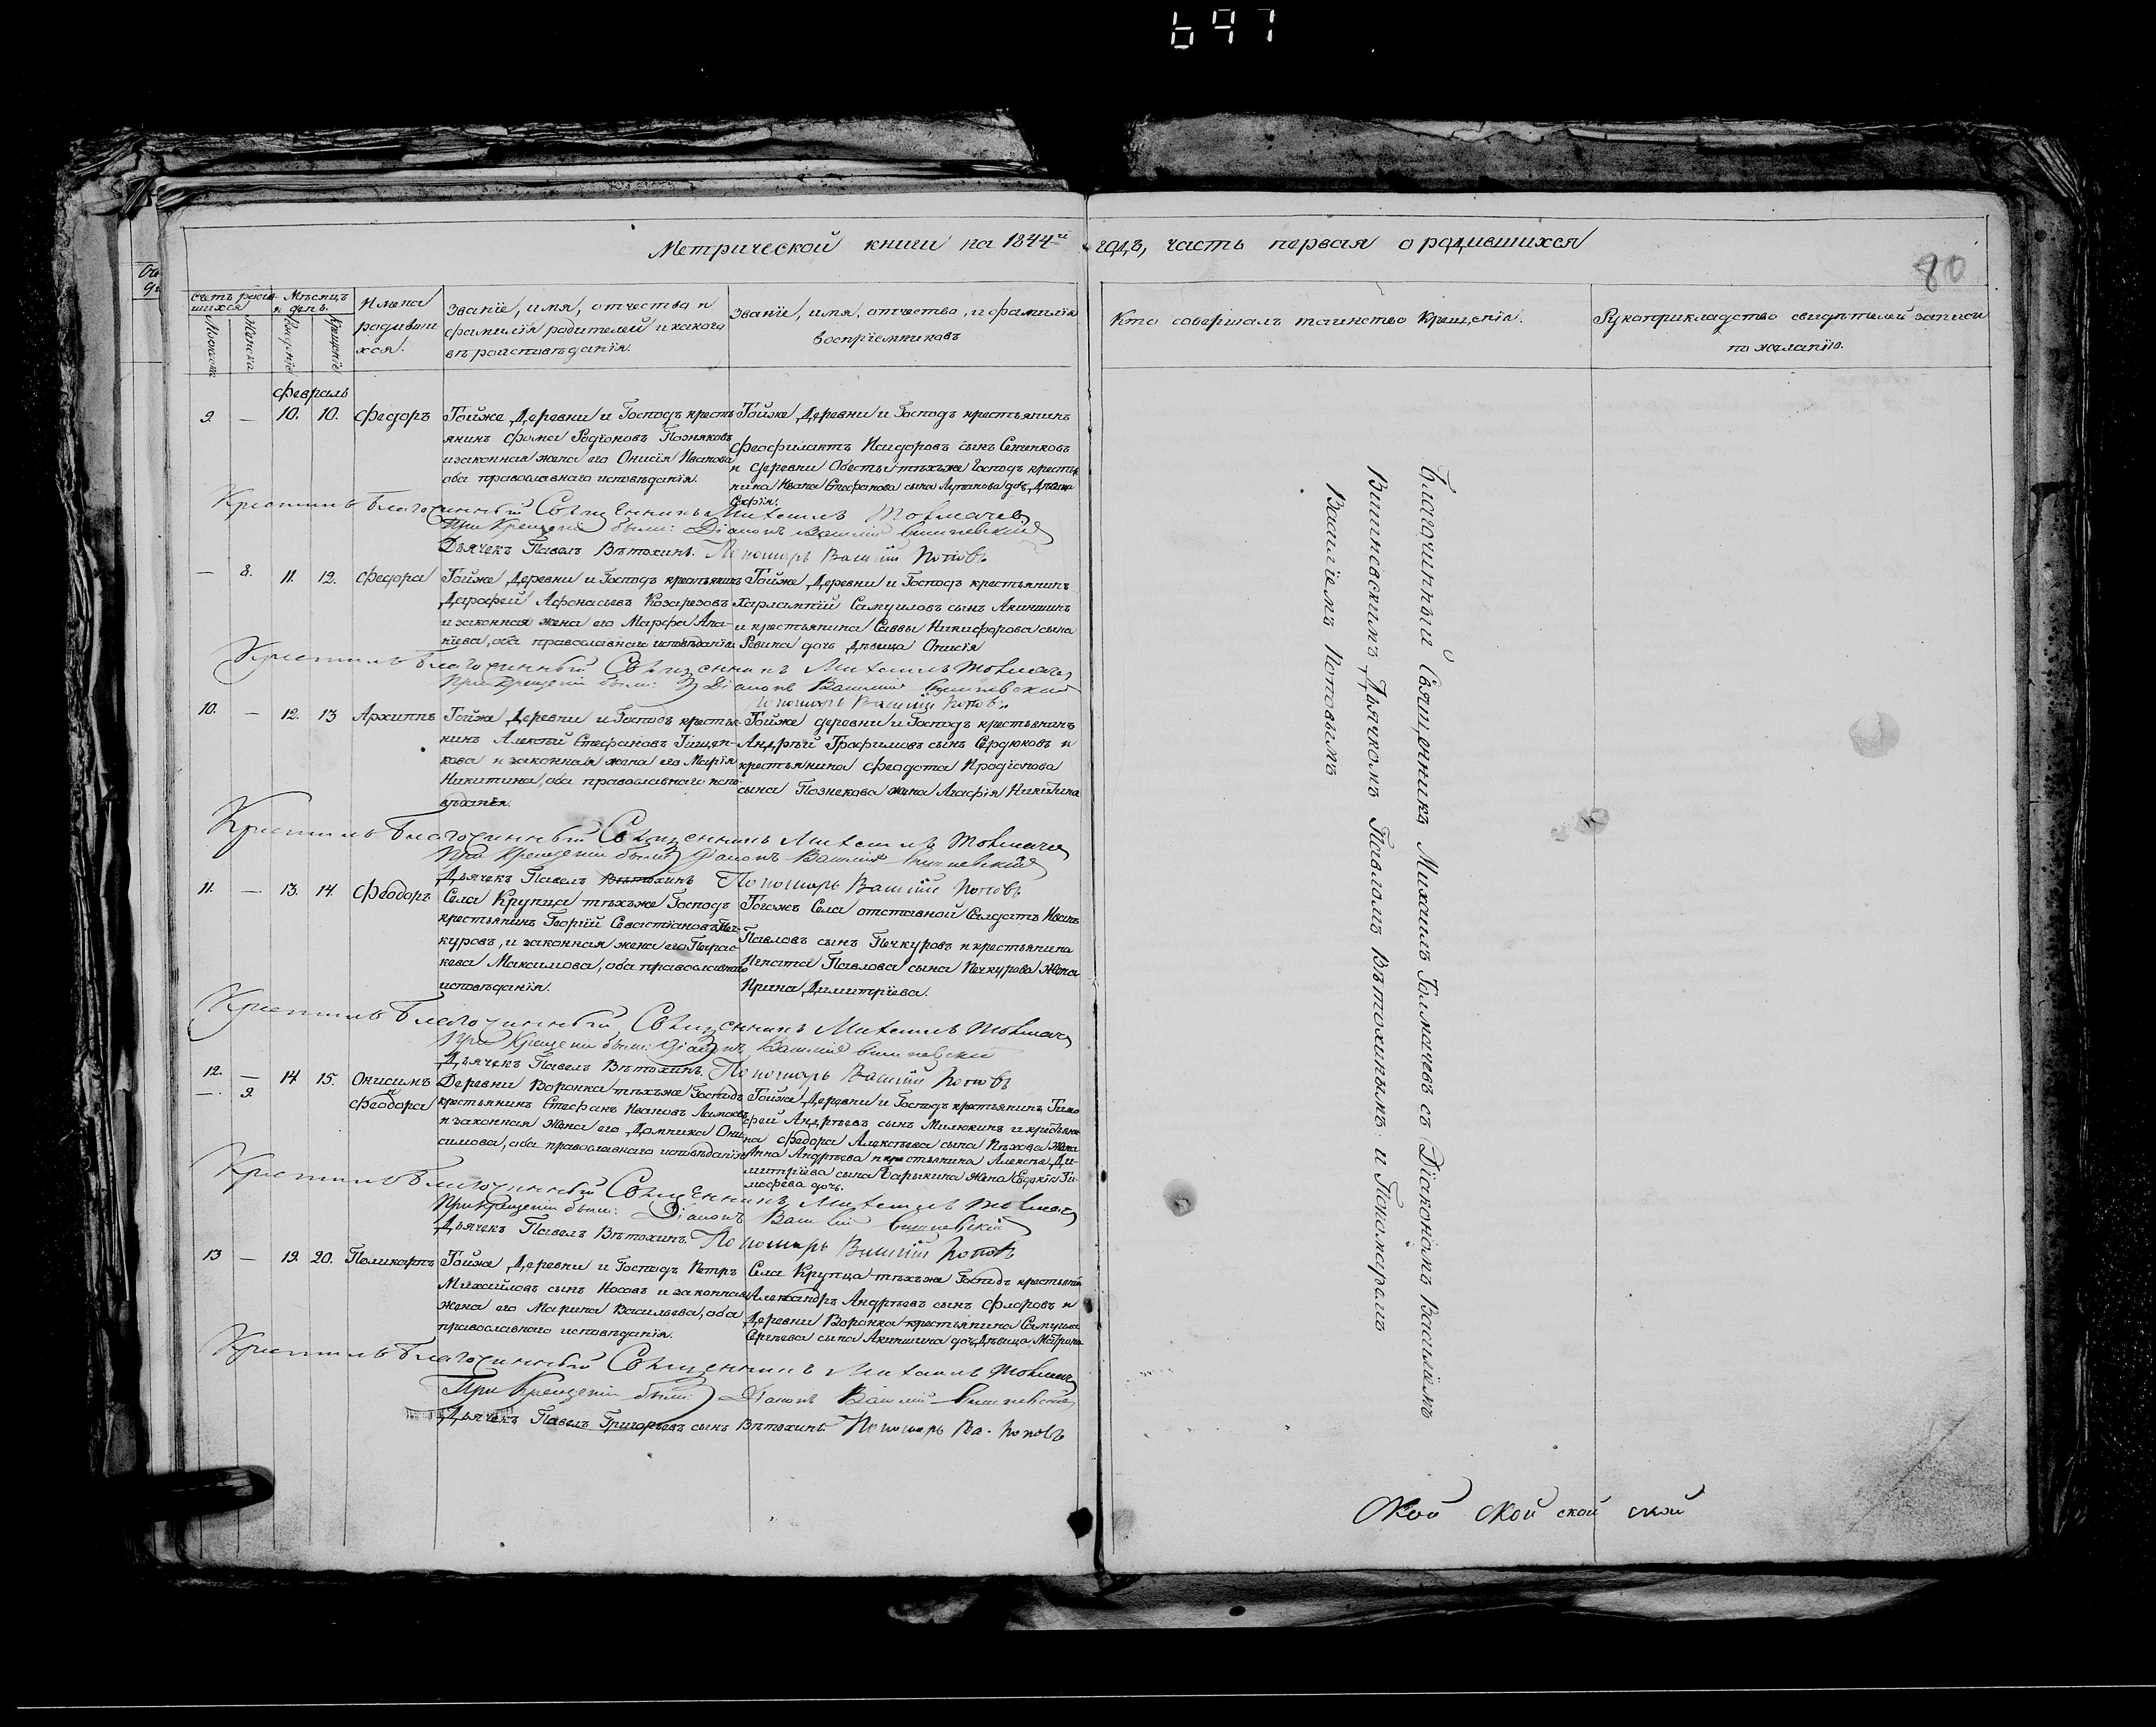 697
Метрической книги на 1844й годъ, часть первая о родившихся
80
Счетъ родив-
шихся
Мѣсяцъ
и день.
Имена
родивши
хся.
Званіе, имя, отчество и
фамилія родителей и какого
вѣроисповѣданія.
Званіе, имя, отчество, и фамилія
воспріемниковъ
Кто совершалъ таинство Крещенія.
Рукоприкладство свидѣтелей записи
по желанію.
Женска
Рожденіе
Крещеніе
Февраль
9. — 10. 10. Федоръ
Тойже Деревни и Господъ кресть
янинъ Фома Родіоновъ Позняковъ
и законная жена его Онисія Иванова
оба православнаго исповѣданія.
Тойже Деревни и Господъ крестьянинъ
Феофилактъ Исидоровъ сынъ Сененковъ
и деревни Обесты тѣхъже Господъ крестья
нина Ивана Стефанова сына дочь Дѣвица
Софія.
Крестилъ Благочинный Священникъ Михаилъ Толмачев
При Крещеніи были: Діаконъ Василій Вишневскій
Дьячекъ Павелъ Вѣтохинъ. Пономарь Василій Поповъ
— 8. 11. 12. Федора
Тойже Деревни и Господъ крестьянинъ
Дорофей Афонасьевъ Козарезовъ
и законная жена его Марфа Ана-
ніева, оба православнаго исповѣданія
Тойже Деревни и Господъ крестьянинъ
Харлампій Самуиловъ сынъ Акиншинъ
и крестьянина Саввы Никифорова сына
Ревина дочь Дѣвица Онисія
Крестилъ Благочинный Священникъ Михаилъ Толмачев
При Крещеніи были: Діаконъ Василій Вишневскій
Пономарь Василій Поповъ
10. — 12. 13 Архиппъ
Тойже Деревни и Господъ крестья-
нинъ Алексѣй Стефановъ Тищен-
кова и законная жена его Марія
Никитина, оба православнаго испо-
вѣданія.
Тойже деревни и Господъ крестьянинъ
Андрей Трафимовъ сынъ Сердюковъ и
крестьянина Феодота Иродіонова
сына Познекова жена Агафія Никитина
Крестилъ Благочинный Священникъ Михаилъ Толмачев
При Крещеніи были Діаконъ Василій Вишневскій
Дьячекъ Павелъ Вѣтохинъ Пономарь Василій Поповъ
11. — 13. 14. Феодоръ
Села Крупца тѣхъже Господъ
крестьянинъ Георгій Севастіановъ Печ-
куровъ, и законная жена его Парас
кева Максимова, оба православнаго
исповѣданія.
Тогожъ Села отставной Салдатъ Иванъ
Павловъ сынъ Печкуровъ и крестьянина
Игната Павлова сына Печкурова жена
Ирина Димитріева.
Крестилъ Благочинный Священникъ Михаилъ Толмачев
При Крещеніи были: Діаконъ Василій Вишневскій
Дьячекъ Павелъ Вѣтохинъ. Пономарь Василій Поповъ
12. — 14 15. Онисимъ
— 9. и Феодора
Деревни Воронка тѣхъже Господъ
крестьянинъ Стефанъ Ивановъ
и законная Жена его Домника Они-
симова, оба православнаго исповѣданія
Тойже Деревни и Господъ крестьянинъ Тимо
фей Андрѣевъ сынъ Милюкинъ и крестьяни
на Федора Алексѣева сына Пѣхова Жена
Анна Андрѣева и крестьянина Алексѣя Ди-
митріева сына Барыкина Жена Евдокія Ти-
мофеева дочь.
Крестилъ Благочинный Священникъ Михаилъ Толмачев
При Крещеніи были: Діаконъ Василій Вишневскій
Дьячекъ Павелъ Вѣтохинъ. Пономарь Василій Поповъ
13 — 19. 20. Поликарпъ
Тойже Деревни и Господъ Петръ
Михайловъ сынъ Носовъ и законная
жена его Марина Васильева, оба
православнаго исповѣданія.
Села Крупца тѣхъже Господъ крестьянинъ
Александръ Андрѣевъ сынъ Фларовъ и
Деревни Воронка крестьянина Самуила
Сергѣева сына Акиншина дочь Дѣвица Матрона
Крестилъ Благочинный Священникъ Михаилъ Толмачев
При Крещеніи были: Діаконъ Василій Вишневскій
Дьячекъ Павелъ Григорьевъ сынъ Вѣтохинъ. Пономарь Ва. Поповъ
Благочинный Священникъ Михаилъ Толмачевъ съ Діакономъ Василіемъ
Вишневскимъ Дьячкомъ Павломъ Вѣтохинымъ и Пономаремъ
Василіемъ Поповымъ
Ской Ской ской ской